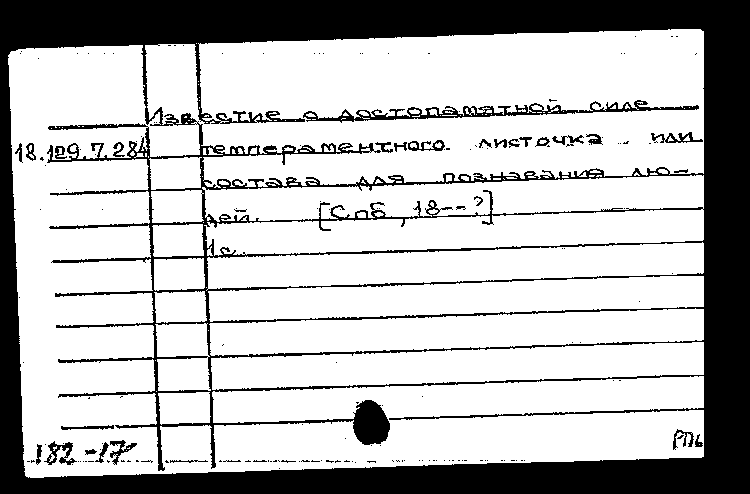 Известие о достопамятной силе
18.129.7.284 темпераментного листочка или
состава для познавания лю-
дей. [Спб, 18--?]
1с.
182-17